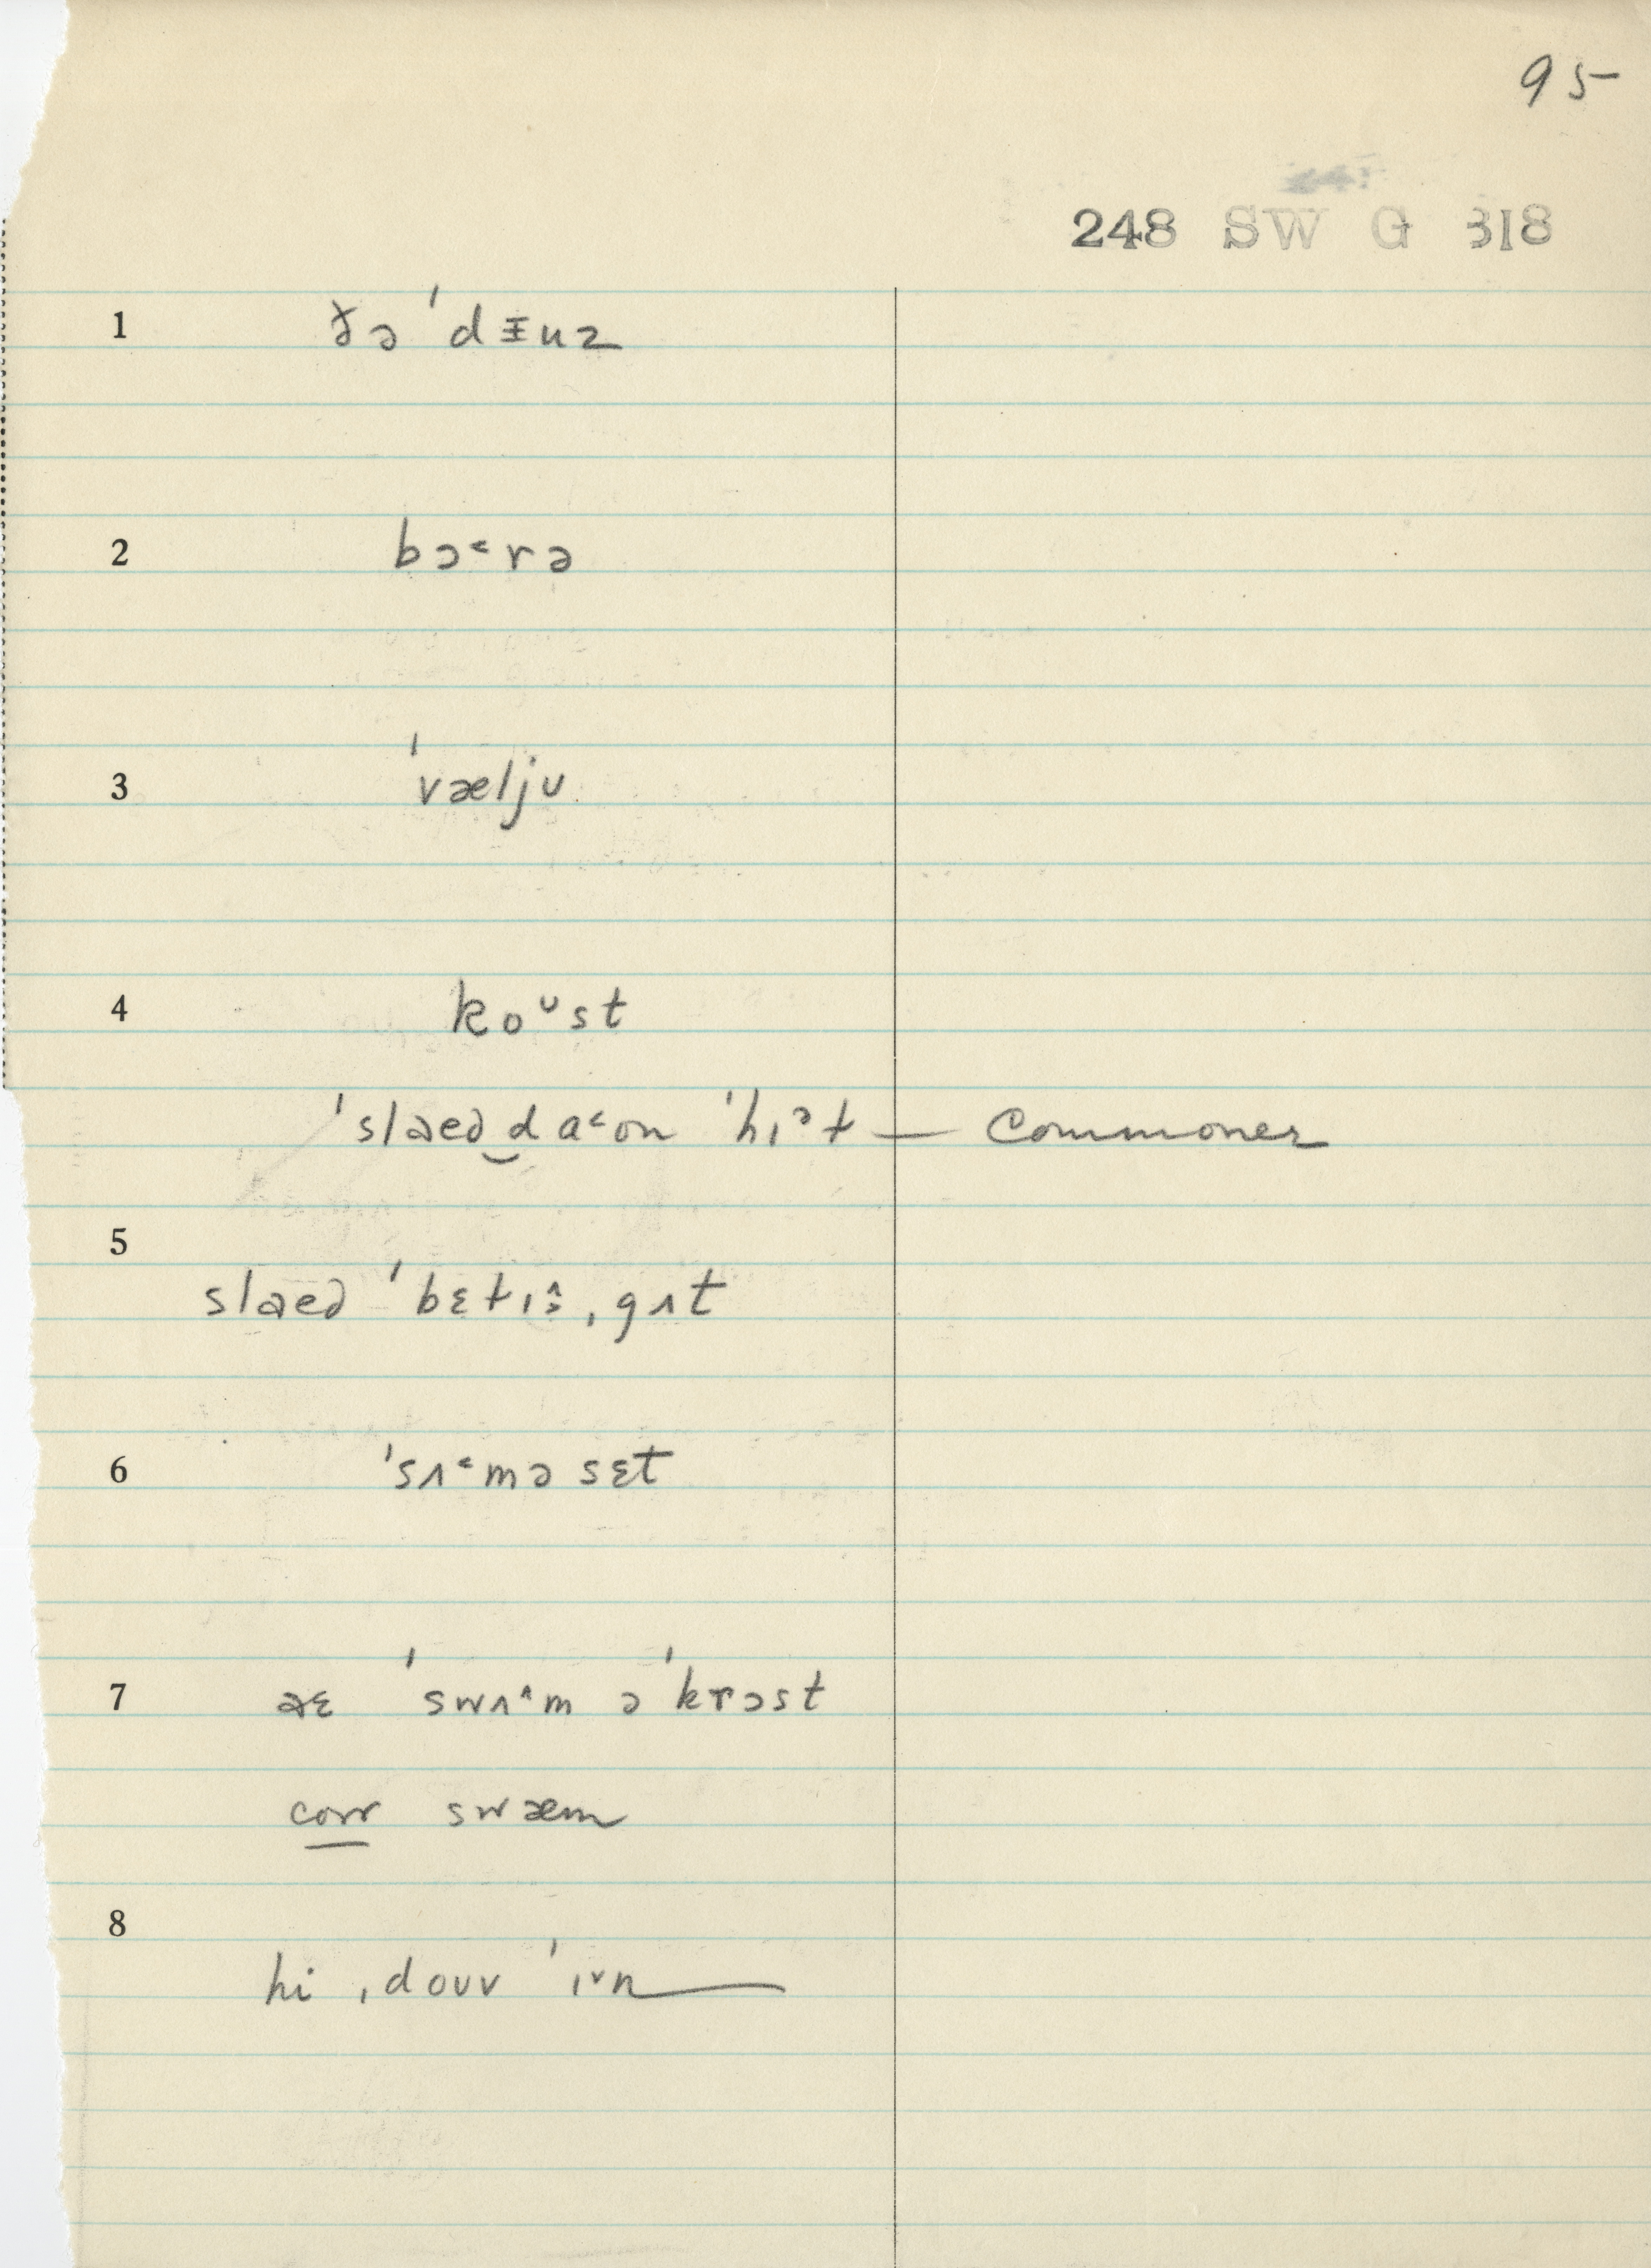 95
248 SW G 318
1 ðə ˈdɪ̵uz
2 bɔ˂rə
3 ˈvæljʊ
4 koᶷst
ˈslaɛd‿da˂ʊn ˈhɪᵊɫ — commoner
5
slaɛd ˈbɛɫɪ˄s ˌgʌt
6 ˈsʌ˂məsɛt
7 aɛ ˈswʌ˄m əˈkrɔst
corr swæm
8
hi ˌdoʊv ˈɪ˅n